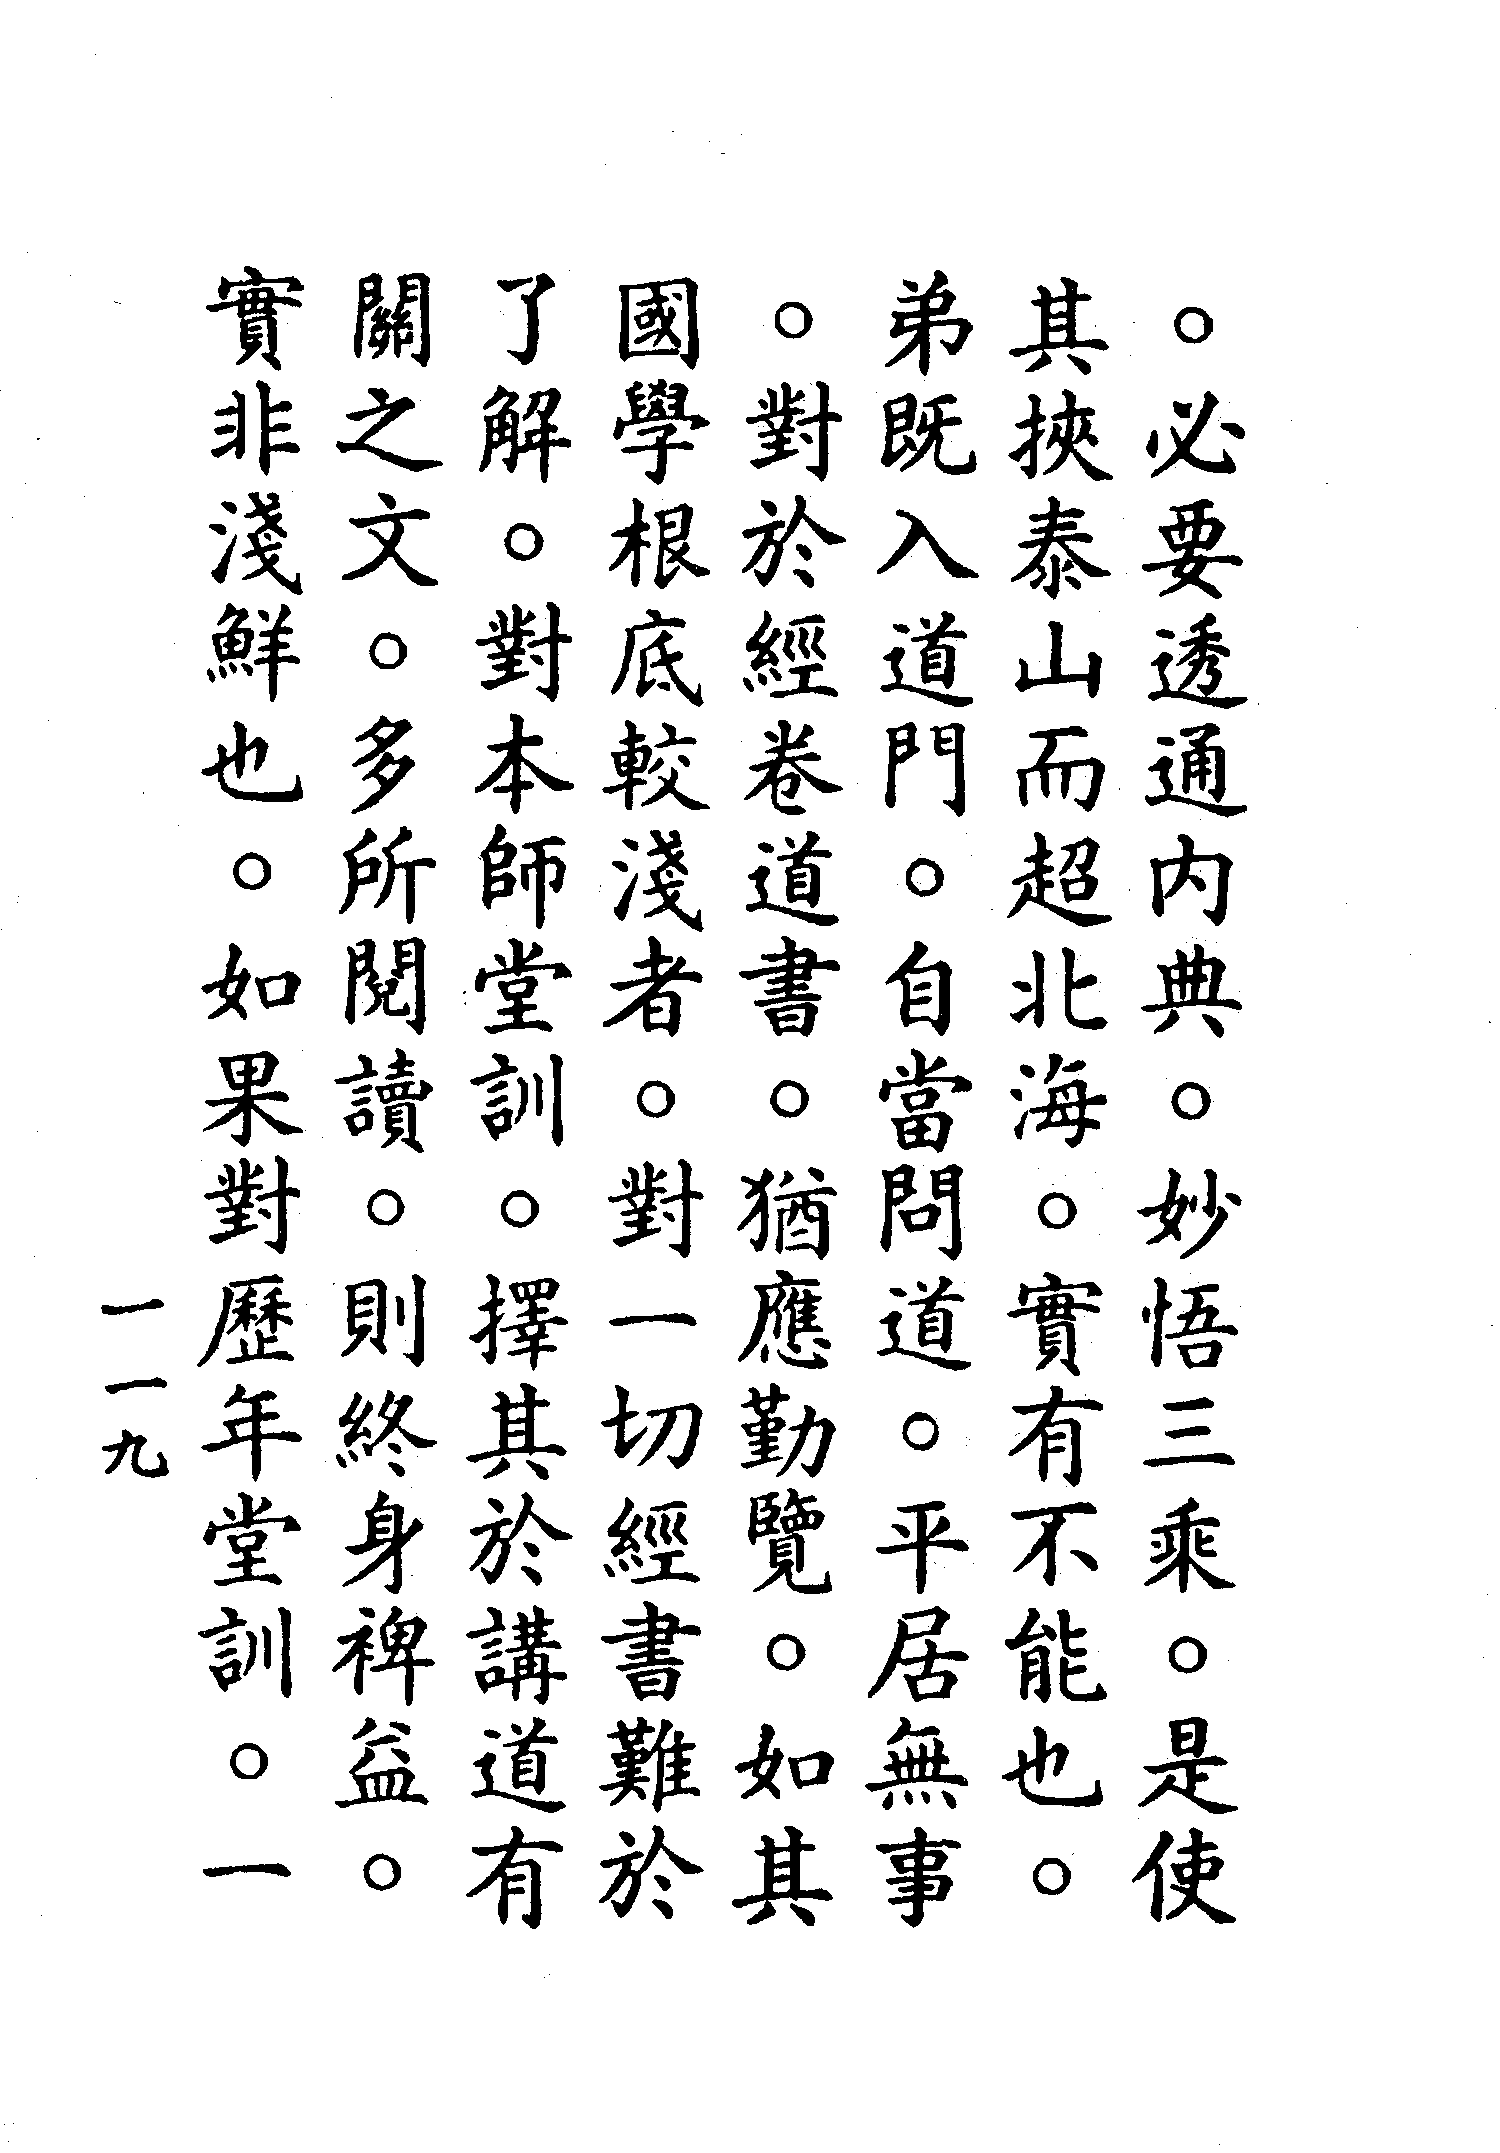 。必要透通内典。妙悟三乘。是使
其挾泰山而超北海。實有不能也。
弟既入道門。自當問道。平居無事
。對於經卷道書。猶應勤覽。如其
國學根底較淺者。對一切經書難於
了解。對本師堂訓。擇其於講道有
關之文。多所閱讀。則終身裨益。
實非淺鮮也。如果對歷年堂訓。一
一一九